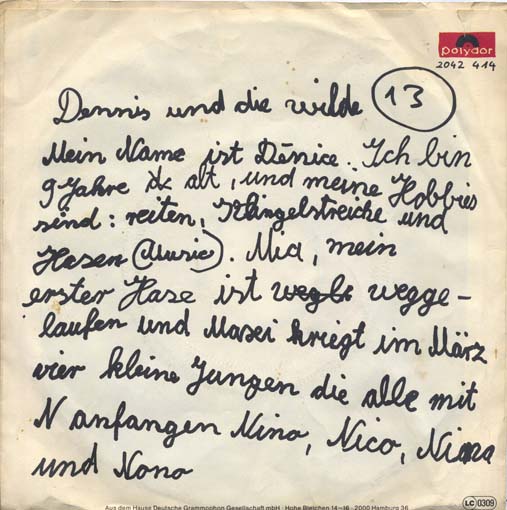 polydor
2042 414
Dennis und die wilde 13
Mein Name ist Dēnice. Ich bin
9 Jahre alt, und meine Hobbies
sind: reiten, Klingelstreiche und
Hasen (Music). Mia, mein
erster Hase ist wegge-
laufen und Masei kriegt im März
vier kleine Jungen die alle mit
N anfangen Nino, Nico, Niana
und Nono
Aus dem Hause Deutsche Grammophon Gesellschaft mbH · Hohe Bleichen 14–16 · 2000 Hamburg 36
LC 0309